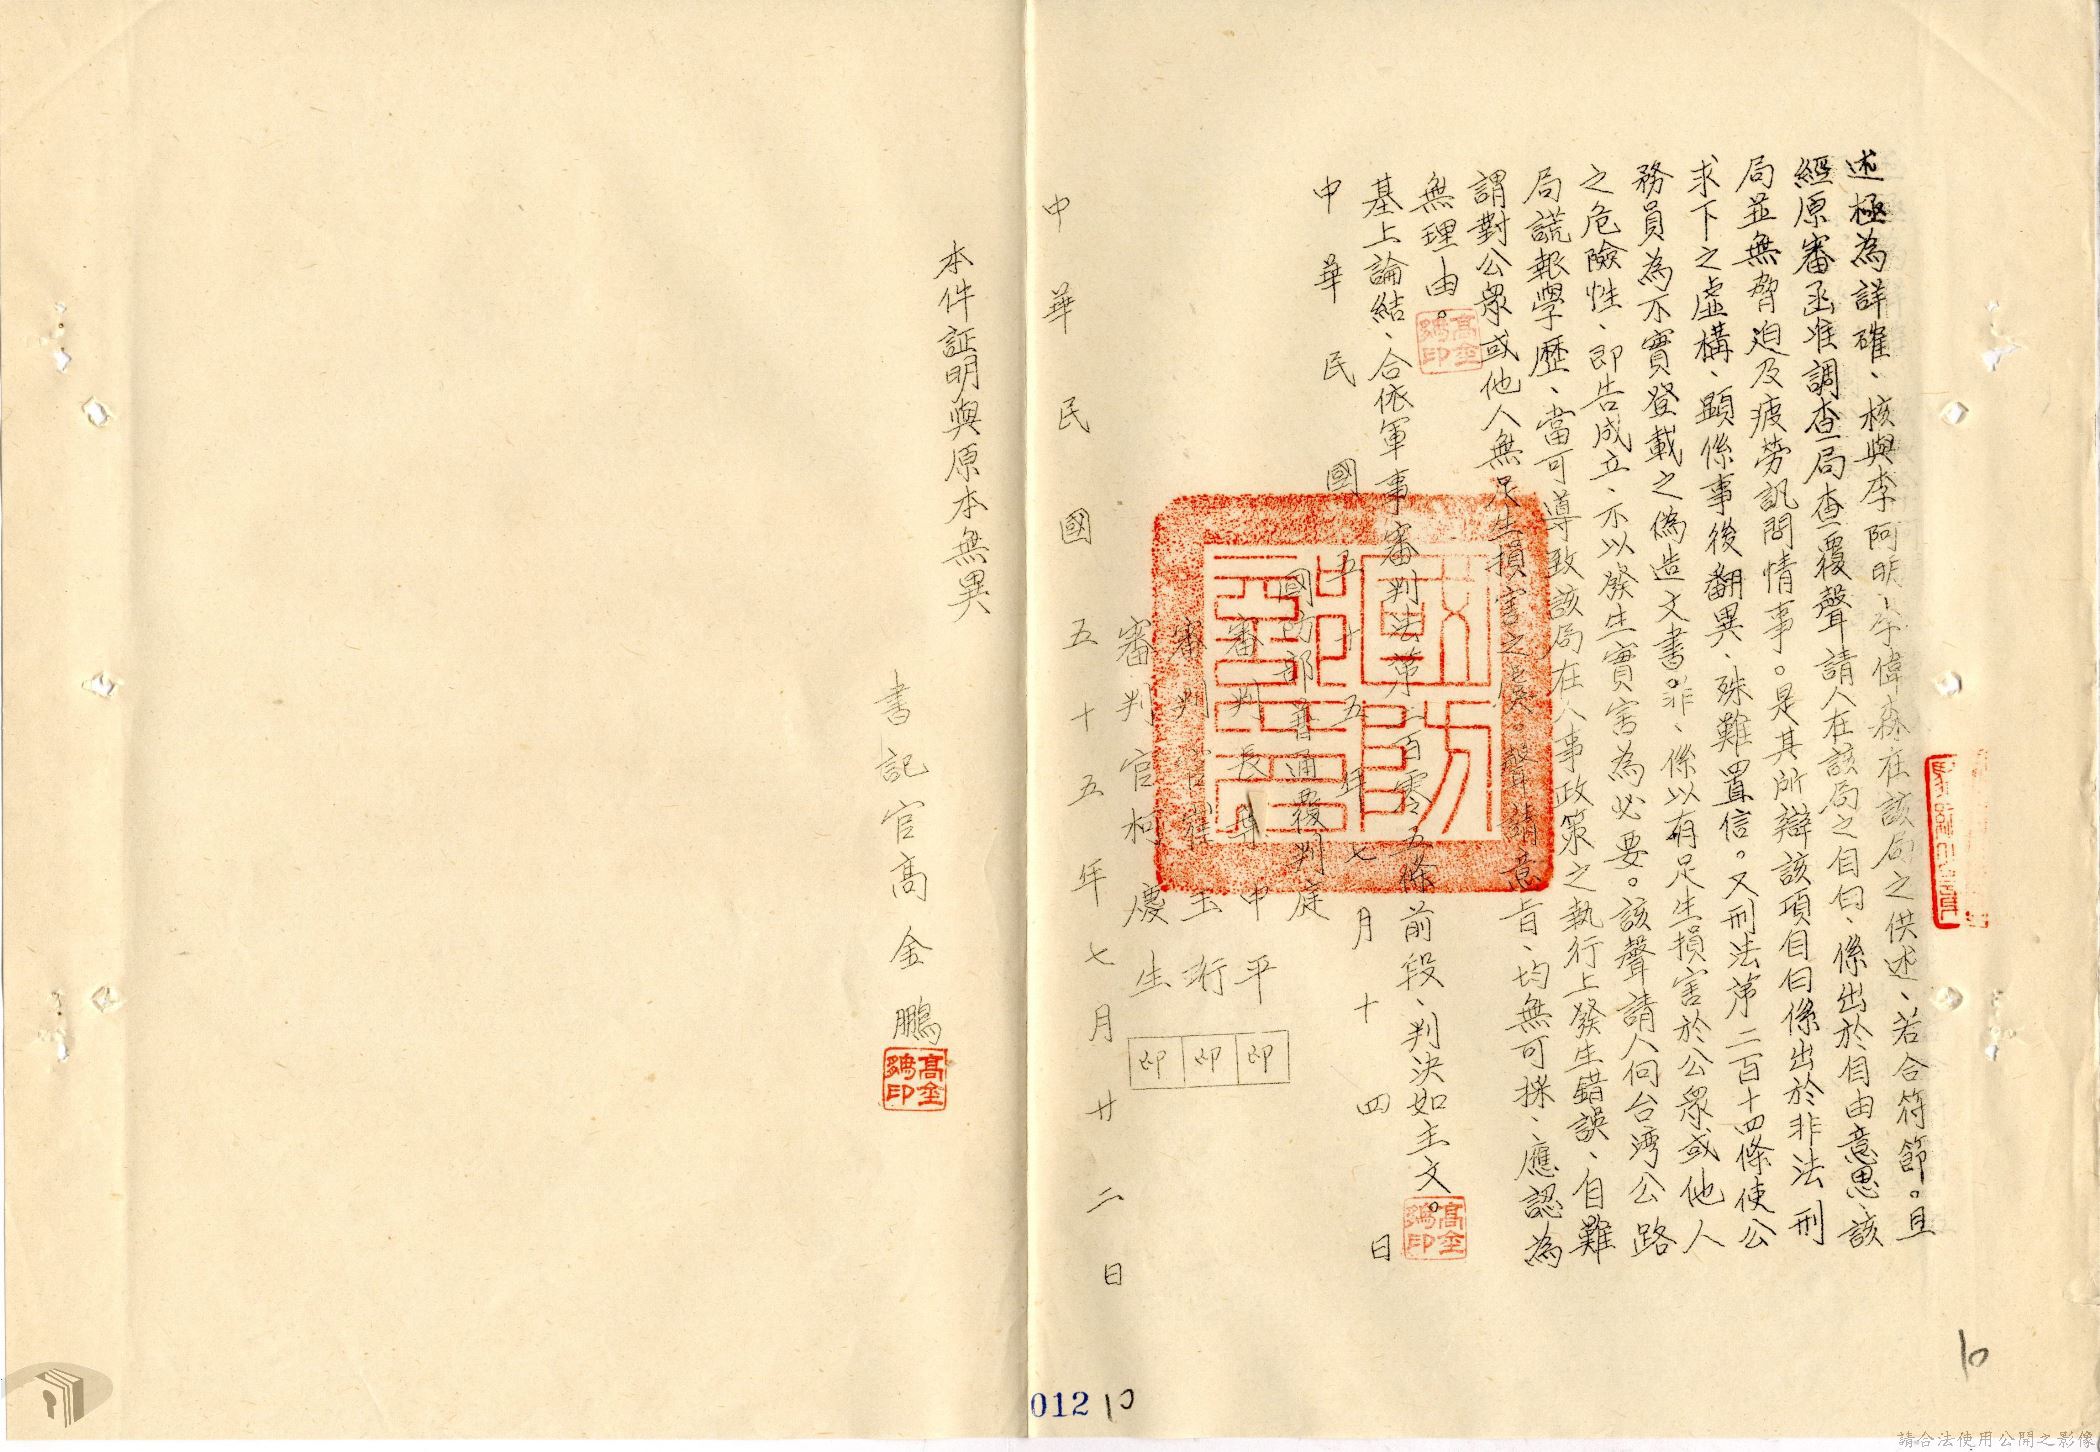 述極為詳確、核與李阿明、李偉森在該局之供述、若合符節。且
經原審函准調查局查覆聲請人在該局之自白、係出於自由意思、該
局並無脅迫及疲勞訊問情事。是其所辯該項自白係出於非法刑
求下之虛構、顯係事後翻異、殊難置信。又刑法第二百十四條使公
務員為不實登載之偽造文書罪、係以有足生損害於公眾或他人
之危險性、即告成立、不以發生實害為必要。該聲請人向台湾公路
局謊報學歷、當可導致該局在人事政策之執行上發生錯誤、自難
謂對公眾或他人無足生損害之虞。聲請意旨、均無可採、應認為
無理由。
高金鵬印
基上論結、合依軍事審判法第二百零五條前段、判決如主文。
高金鵬印
中華民國五十五年七月十四日
國防部普通覆判庭
國防部印
審判長 中平 印
審判官 玉珩 印
審判官柯慶生 印
中華民國五十五年七月廿二日
本件証明與原本無異
書記官高金鵬
高金鵬印
012
10
10
請合法使用公開之影像